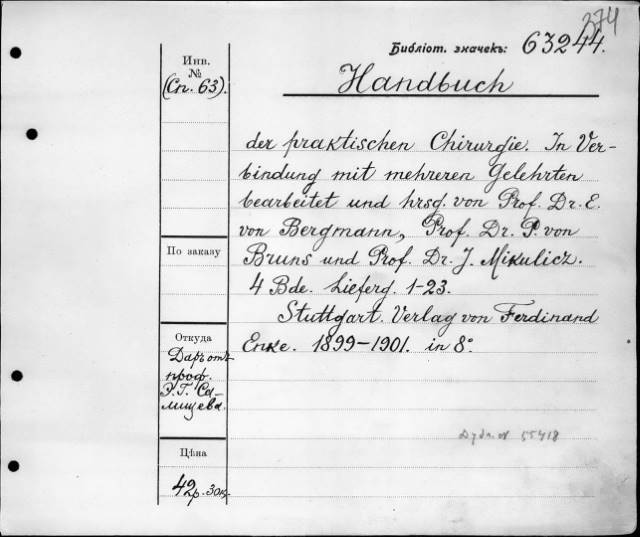 374
Библіот. значекъ: 63244.
Инв.
№
(Сп. 63).
Handbuch
der praktischen Chirurgie. In Ver-
bindung mit mehreren Gelehrten
bearbeitet und hrsg. von Prof. Dr. E.
von Bergmann, Prof. Dr. P. von
Bruns und Prof. Dr. J. Mikulicz.
4 Bde. Lieferg. 1-23.
Stuttgart. Verlag von Ferdinand
Enke. 1899-1901. in 8°.
По заказу
Откуда
Даръ отъ
проф.
Э. Г. Са-
лищева.
55418
Цѣна
42р. 30к.